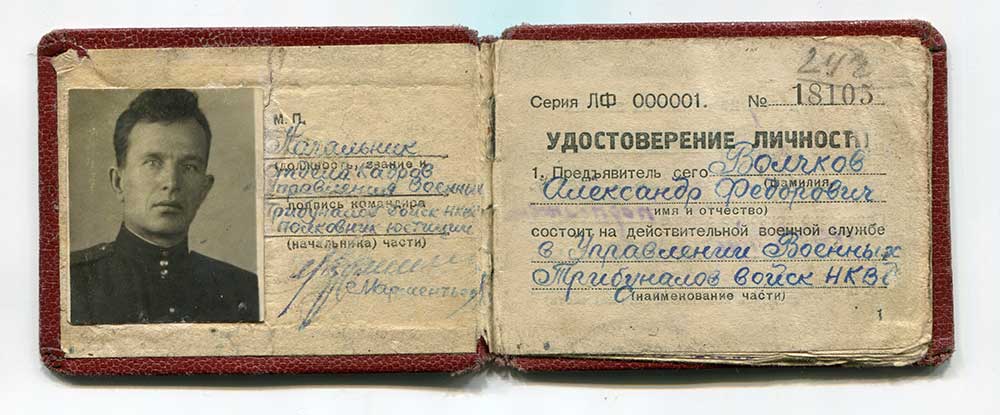 М. П.
Начальник
должность, звание и
отдела кадров
Управления Военных
подпись командира
Трибуналов войск НКВД
полковник юстиции
(начальника) части)
242
Серия ЛФ 000001. № 18105
УДОСТОВЕРЕНИЕ ЛИЧНОСТИ
1. Предъявитель сего Волчков
(фамилия,
Александр Федорович
имя и отчество)
состоит на действительной военной службе
в Управлении Военных
Трибуналов войск НКВД
(наименование части)
1